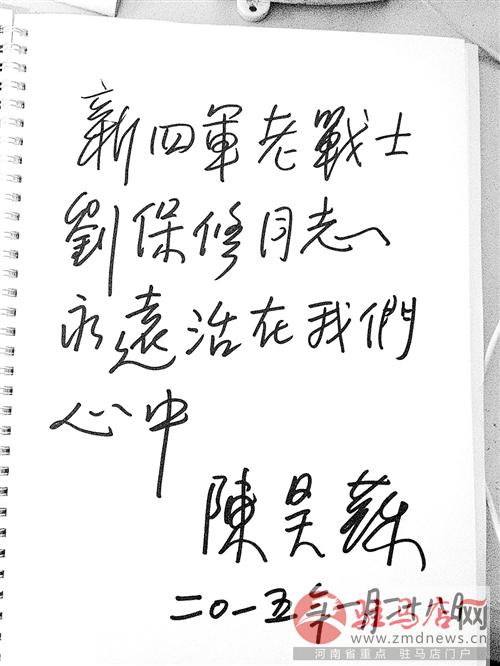 新四軍老戰士
劉保修同志
永遠活在我們
心中
陳昊蘇
二〇一五年一月
驻马店网
www.zmdnews.cn
河南省重点 驻马店门户